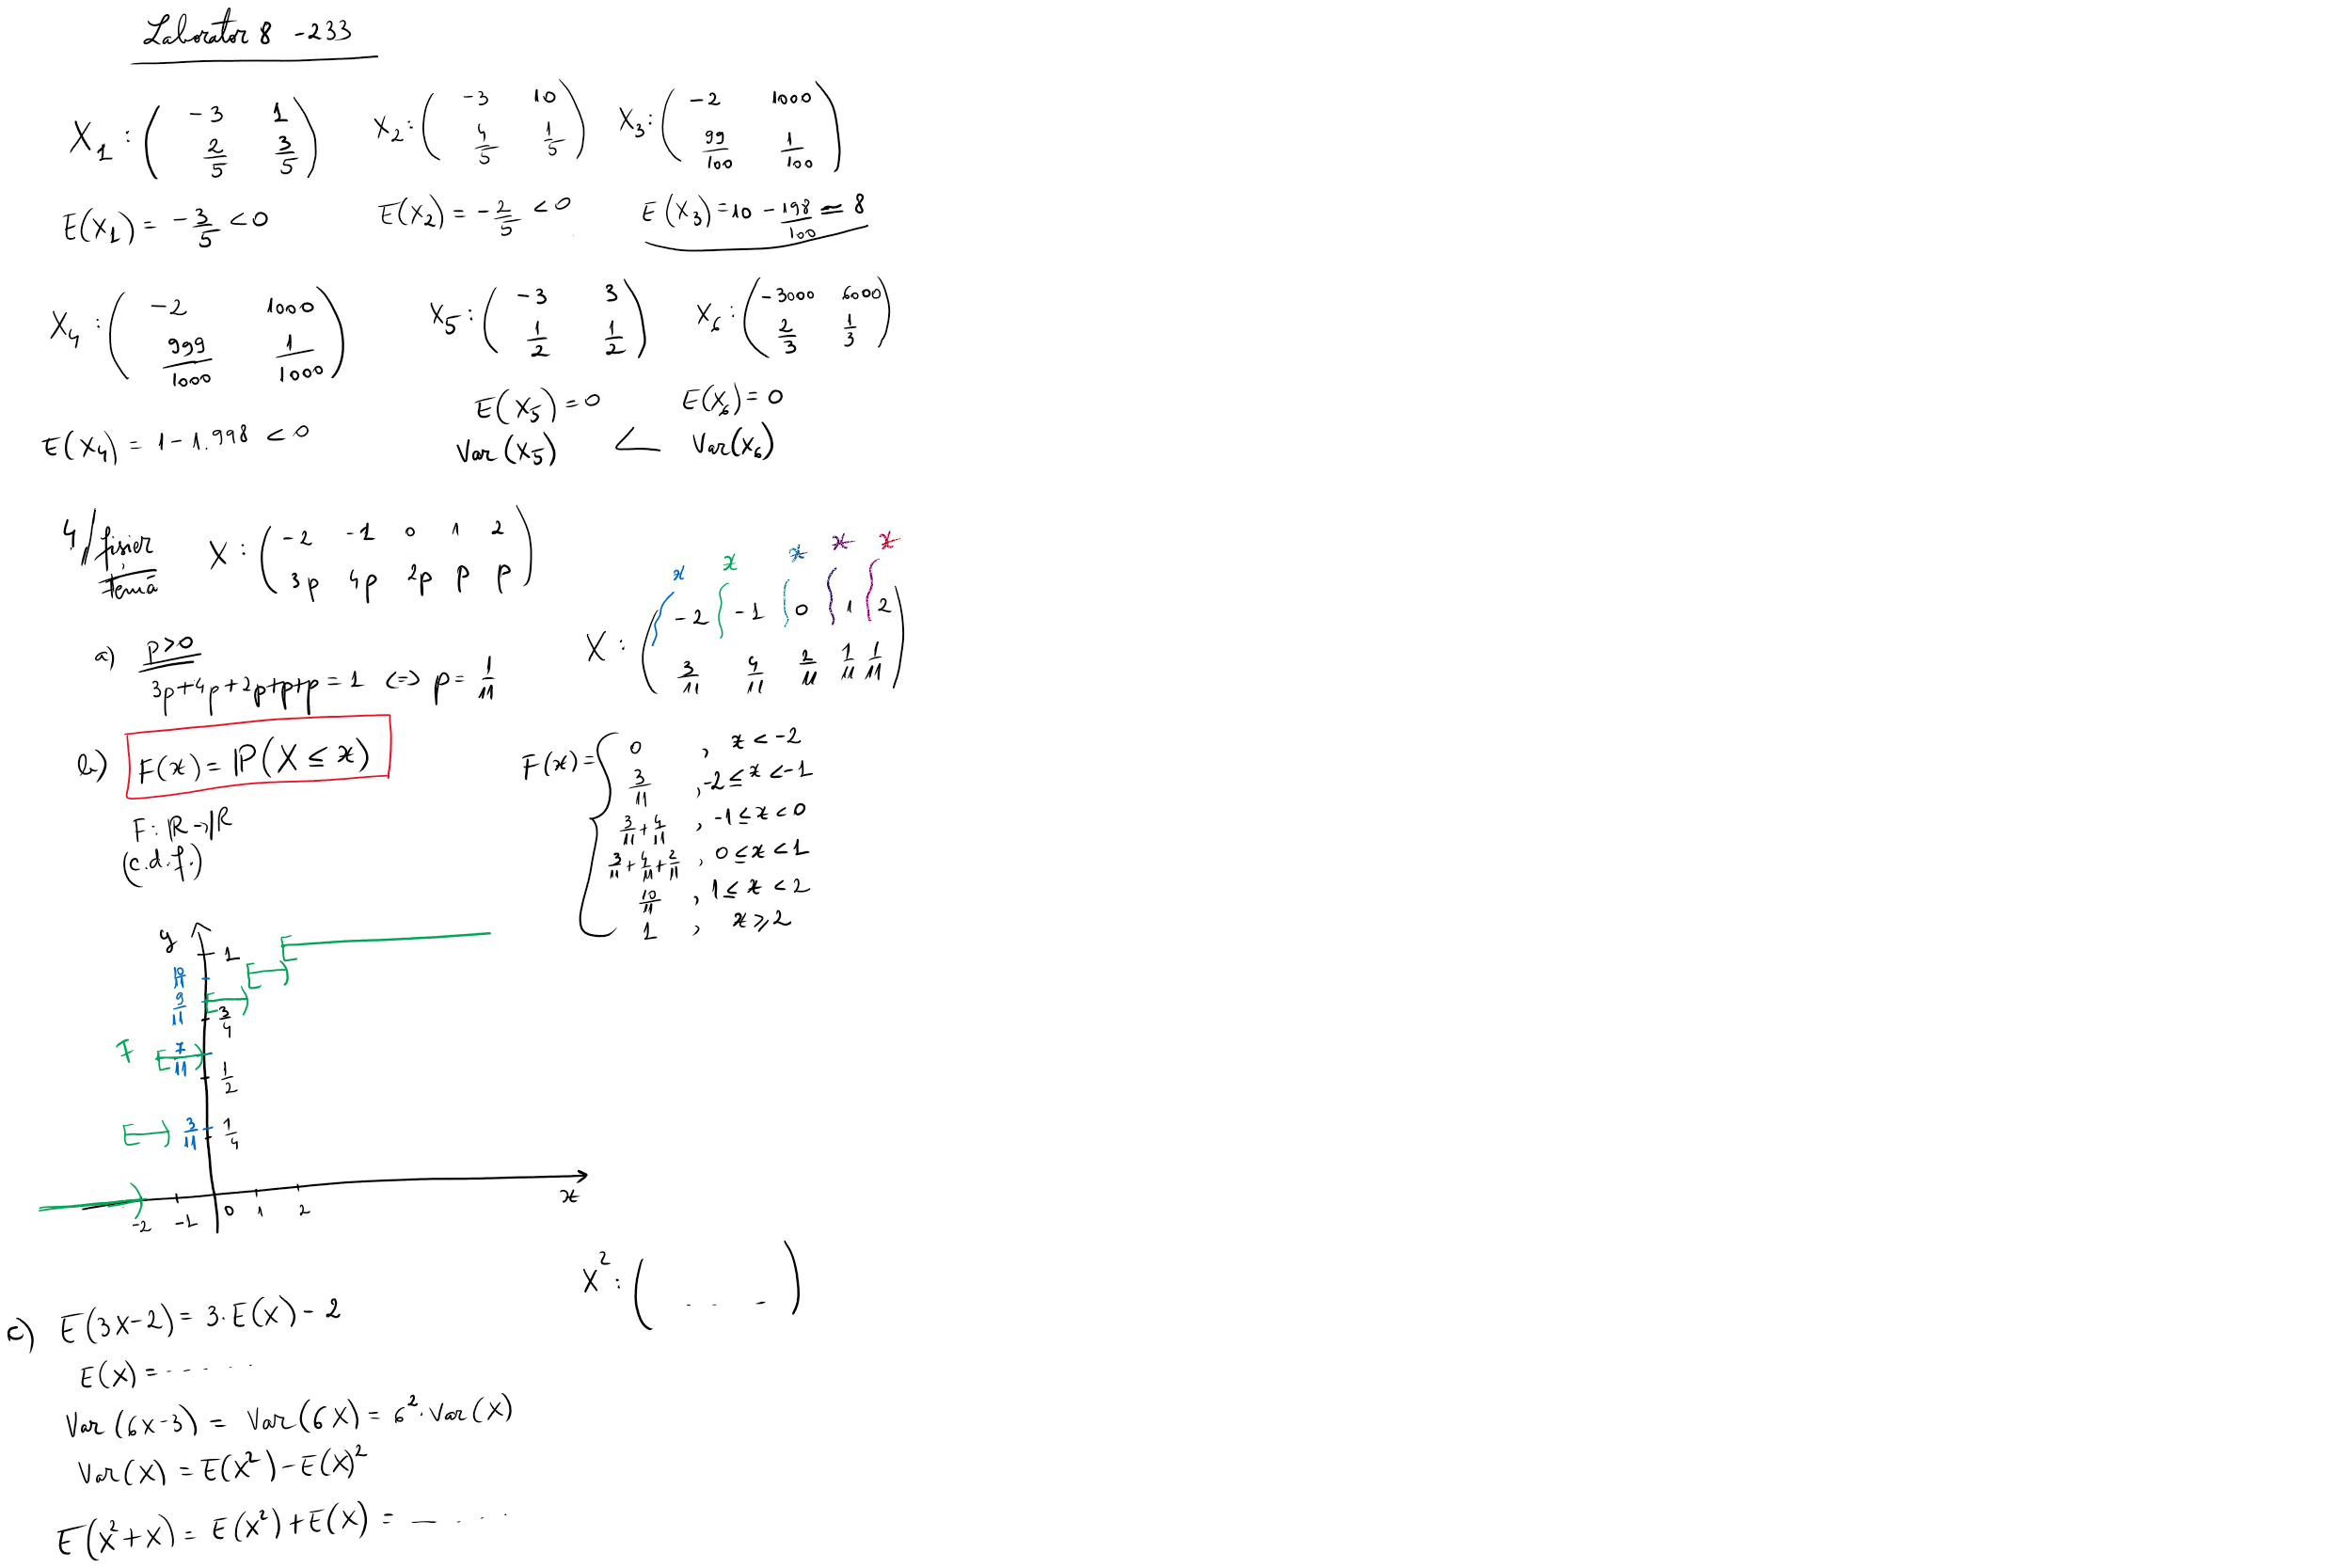 Laborator 8 -233
X₁ : ( -3 1 ; 2/5 3/5 ) X₂ : ( -3 10 ; 4/5 1/5 ) X₃ : ( -2 1000 ; 99/100 1/100 )
E(X₁) = -3/5 < 0 E(X₂) = -2/5 < 0 E(X₃) = 10 - 198/100 ≃ 8
X₄ : ( -2 1000 ; 999/1000 1/1000 ) X₅ : ( -3 3 ; 1/2 1/2 ) X₆ : ( -3000 6000 ; 2/3 1/3 )
E(X₅) = 0 E(X₆) = 0
E(X₄) = 1 - 1.998 < 0 Var(X₅) < Var(X₆)
4/ fișier temă X : ( -2 -1 0 1 2 ; 3p 4p 2p p p )
x x x x x
X : ( -2 -1 0 1 2 ; 3/11 4/11 2/11 1/11 1/11 )
a) p>0
3p+4p+2p+p+p = 1 <=> p = 1/11
b) F(x) = P(X ≤ x)
F: R→R
(c.d.f.)
F(x) = { 0 , x < -2
3/11 , -2 ≤ x < -1
3/11 + 4/11 , -1 ≤ x < 0
3/11 + 4/11 + 2/11 , 0 ≤ x < 1
10/11 , 1 ≤ x < 2
1 , x ⩾ 2
y 1
10/11
9/11 3/4
F 7/11 1/2
3/11 1/4
-2 -1 0 1 2 x
X² : ( . . . - )
c) E(3X-2) = 3·E(X) - 2
E(X) = - - - - -
Var(6X-3) = Var(6X) = 6²·Var(X)
Var(X) = E(X²) - E(X)²
E(X²+X) = E(X²)+E(X) = — . . . .